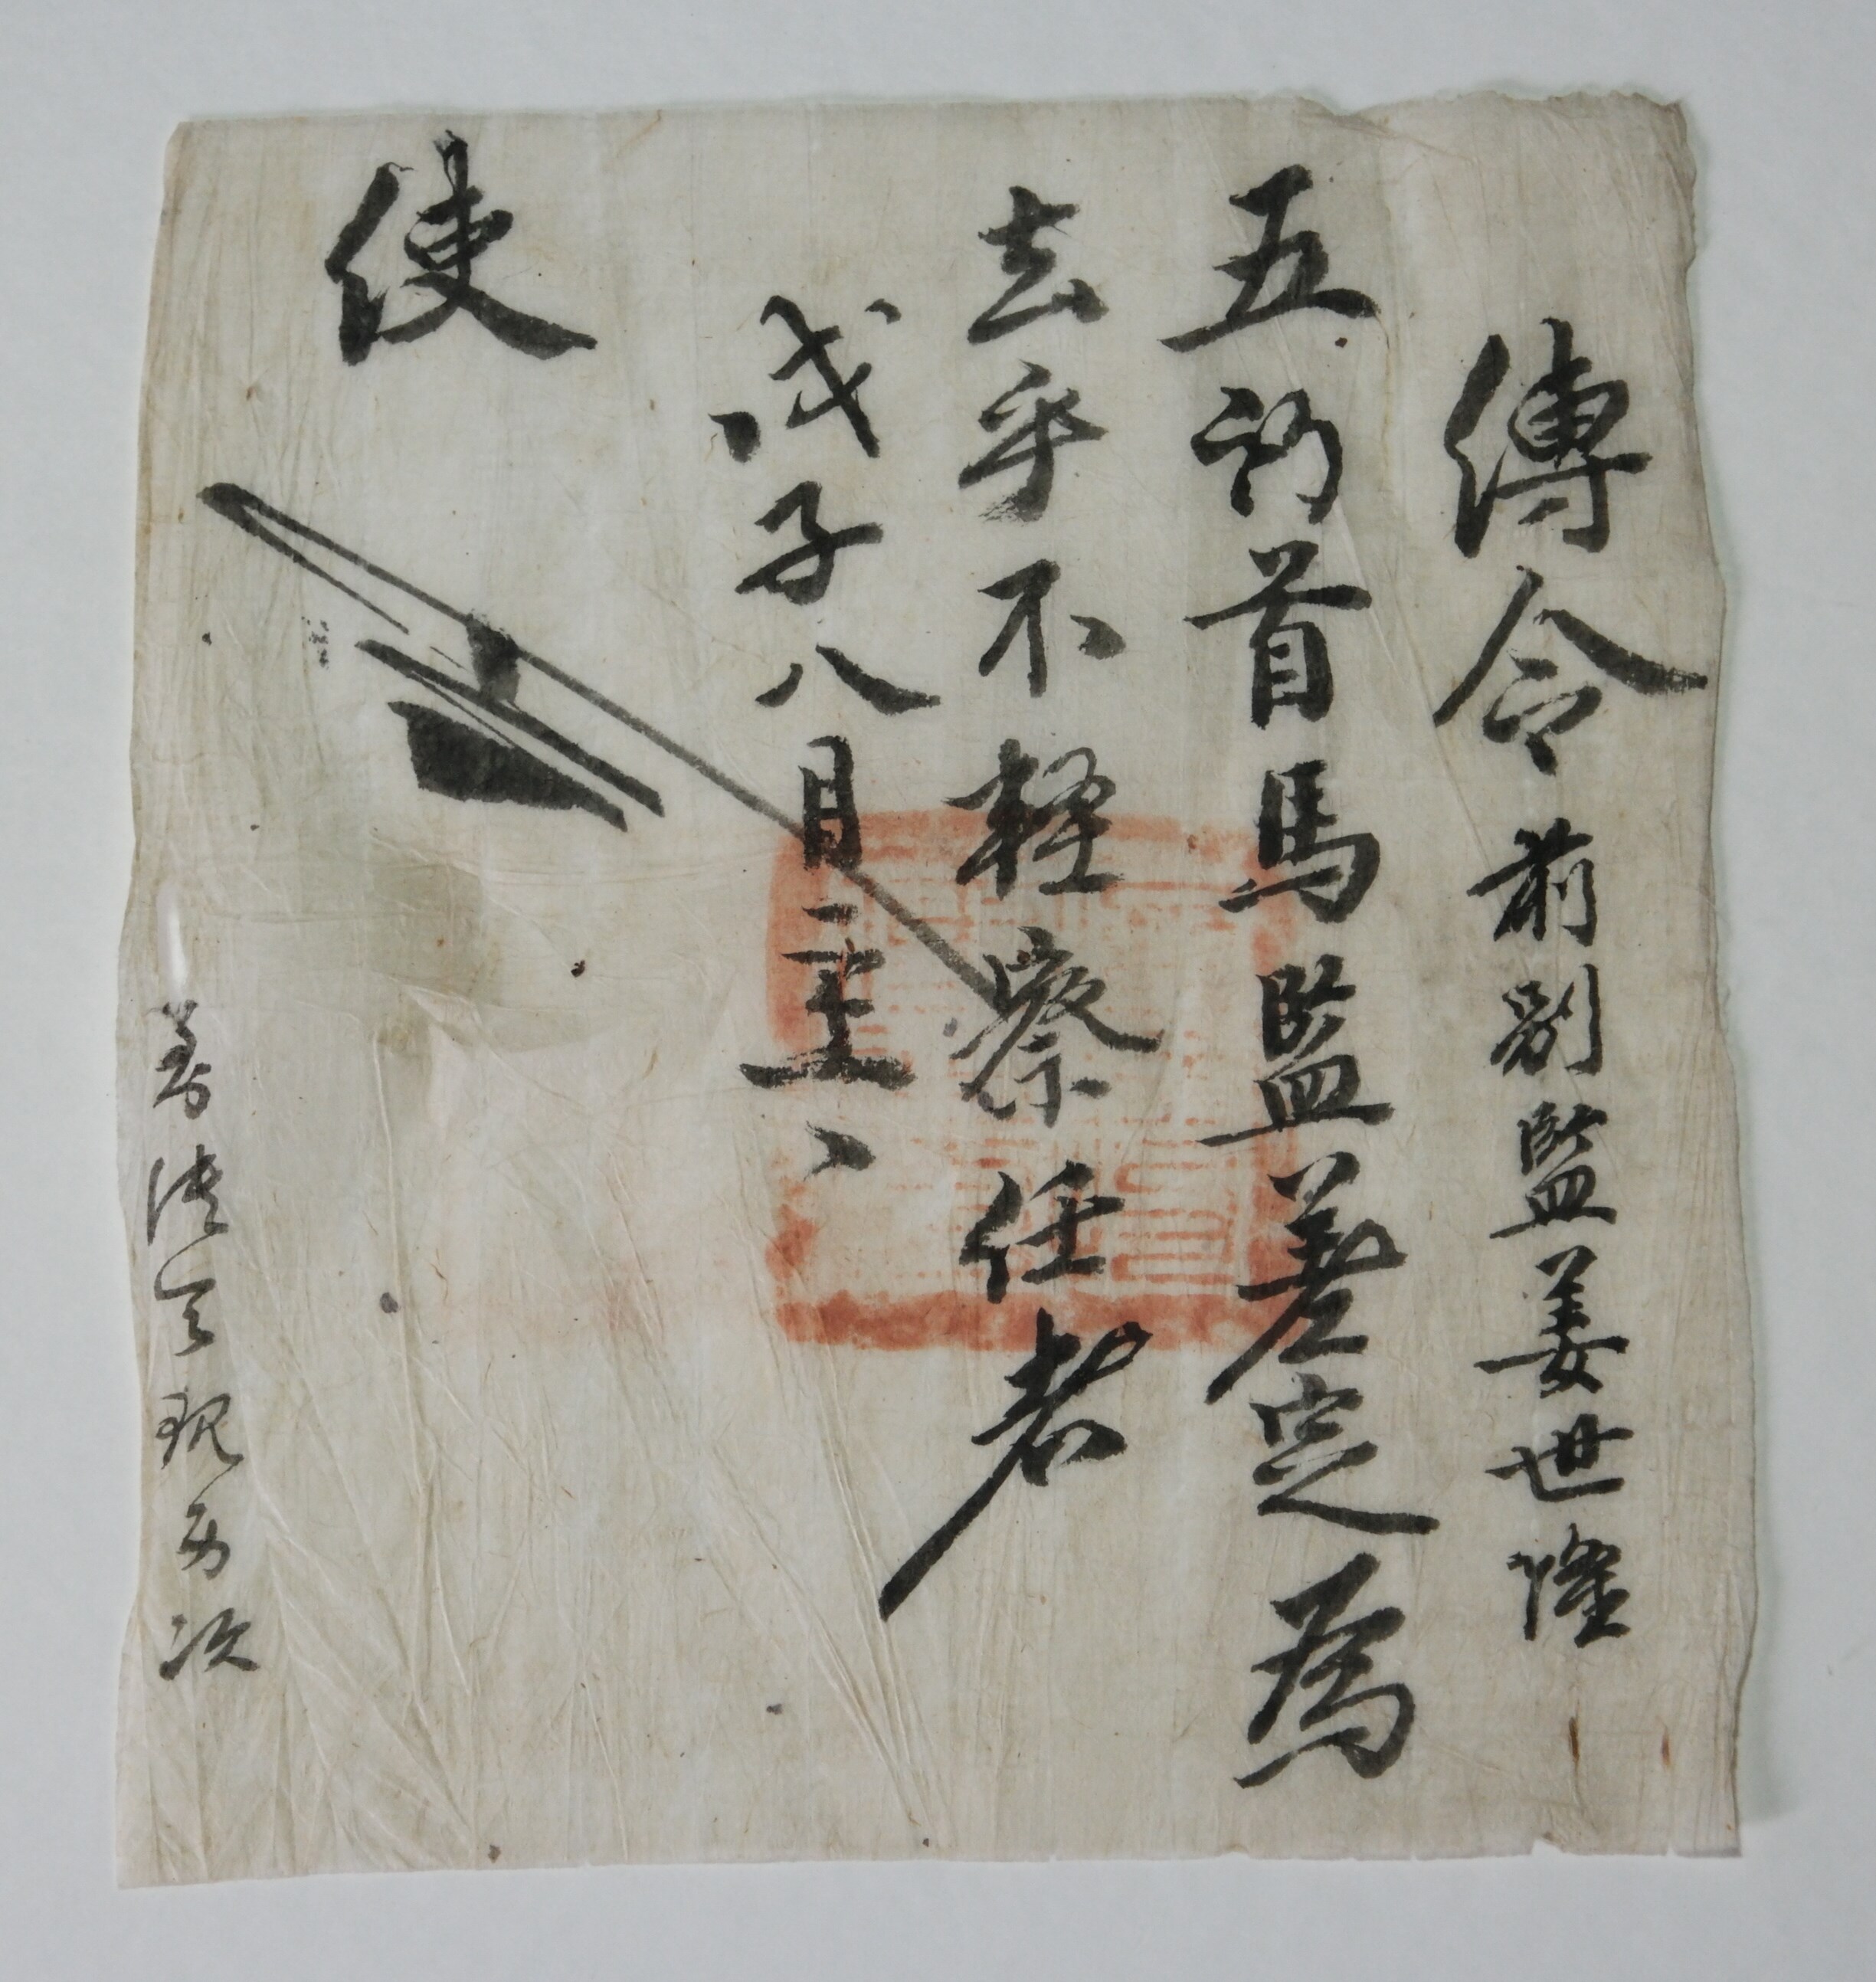 傳令 前別監姜世隆
五所首馬監差定爲
去乎不輕察任者
戊子八月二十
使
着法